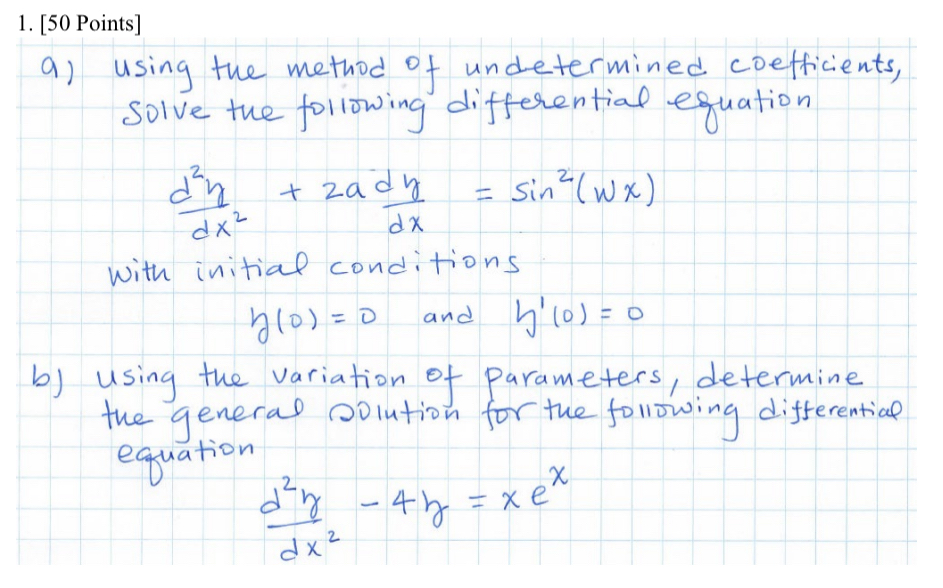 1. [50 Points]
a) using the method of undetermined coefficients,
solve the following differential equation
d²y/dx² + 2a dy/dx = sin²(wx)
with initial conditions
y(0) = 0 and y'(0) = 0
b) using the variation of parameters, determine
the general solution for the following differential
equation
d²y/dx² - 4y = x eˣ